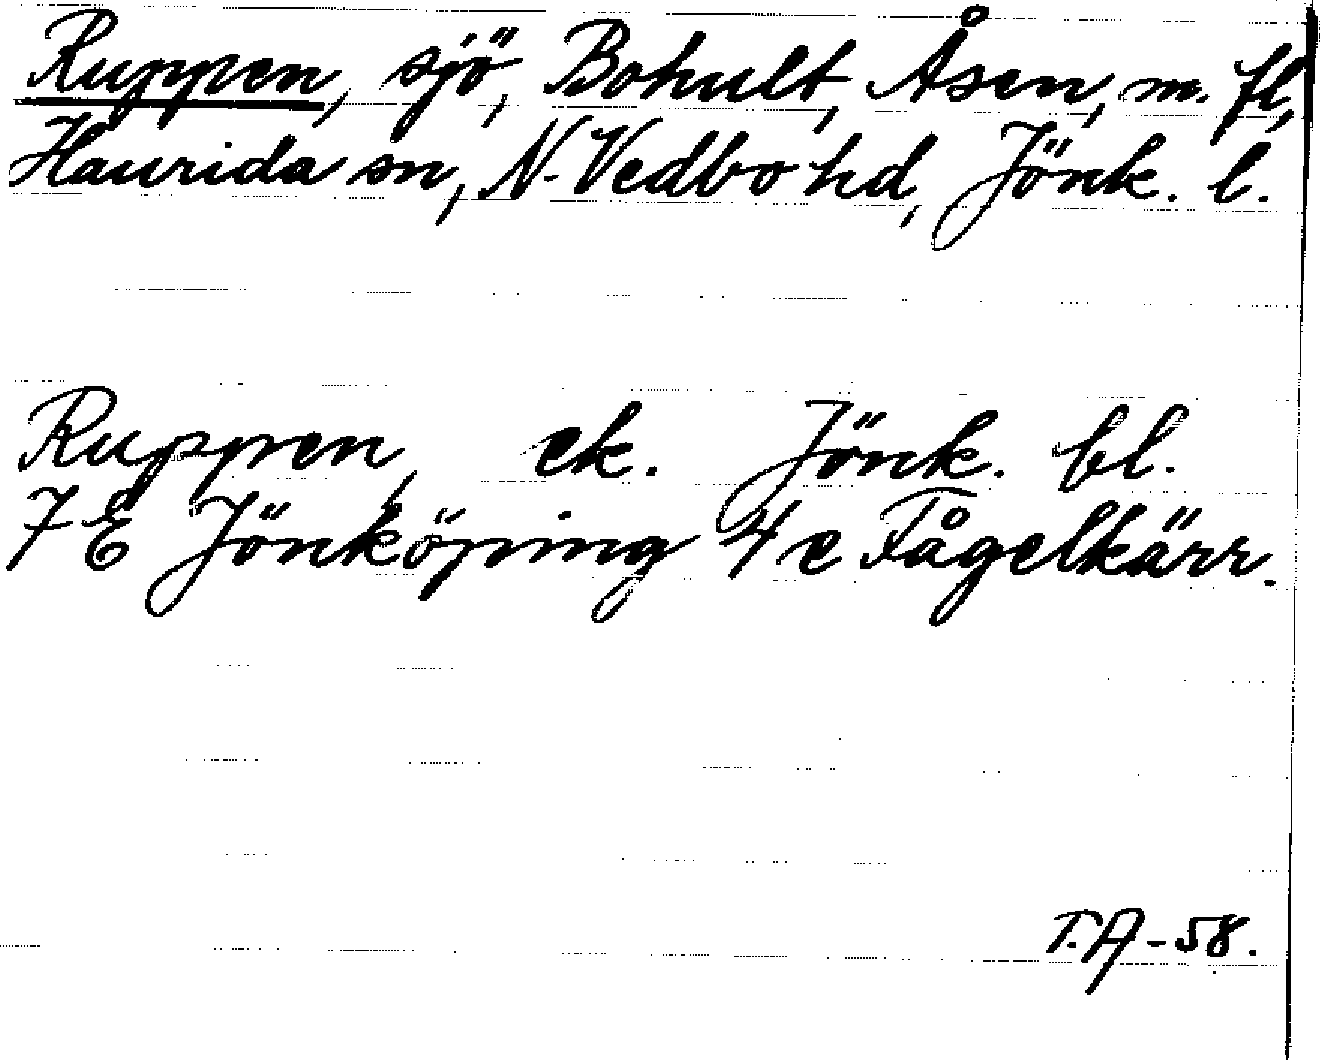 Ruppen, sjö, Bohult, Åsen, m. fl,
Haurida sn, N. Vedbo hd, Jönk. l.
Ruppen, ek. Jönk. bl.
7 E Jönköping 4 e Fågelkärr.
T.A-58.